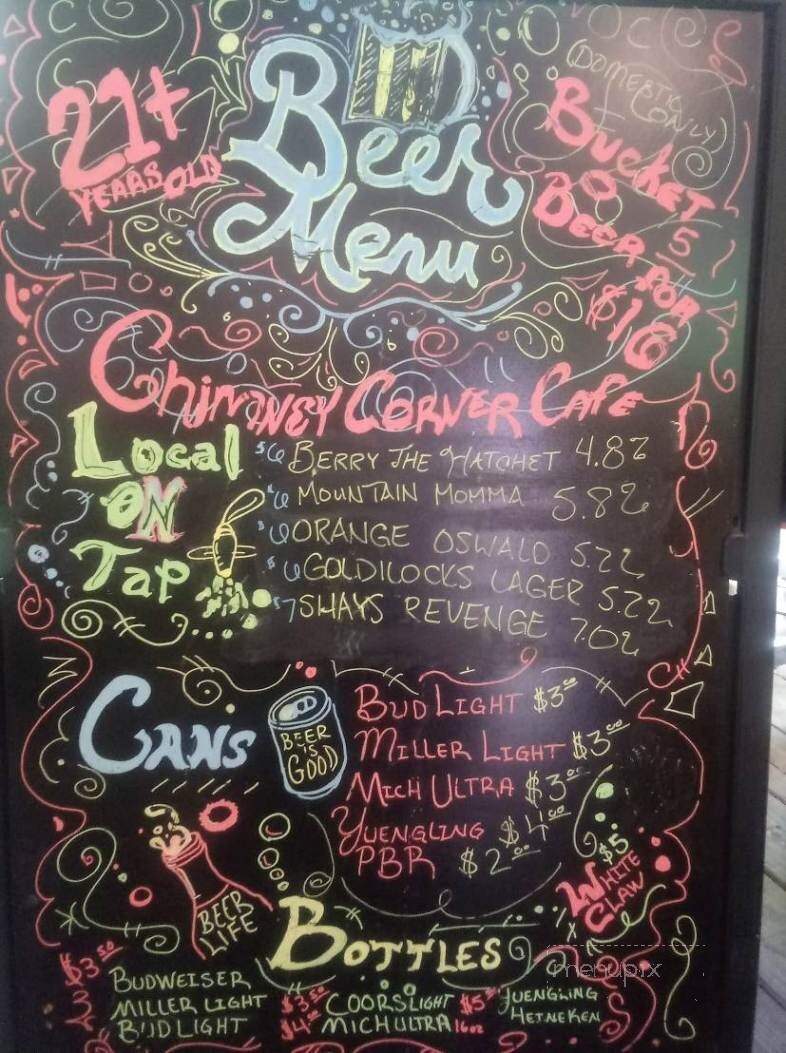 21+
YEARS OLD
Beer
Menu
(DOMESTIC
ONLY)
BUCKET
O
BEER
5
FOR
$16
Chimney Corner Cafe
Local
ON
Tap
$6 BERRY THE HATCHET 4.8%
$6 MOUNTAIN MOMMA 5.8%
$6 ORANGE OSWALD 5.2%
$6 GOLDILOCKS LAGER 5.2%
$7 SHAYS REVENGE 7.0%
CANS
BEER
IS
GOOD
BUD LIGHT $3.00
MILLER LIGHT $3.00
MICH ULTRA $3.00
YUENGLING $4.00
PBR $2.00
$5
WHITE
CLAW
BEER
LIFE
BOTTLES
$3.50
BUDWEISER
MILLER LIGHT
BUD LIGHT
$3.50 COORSLIGHT
$4.00 MICHULTRA 16oz
YUENGLING
HEINEKEN
menupix